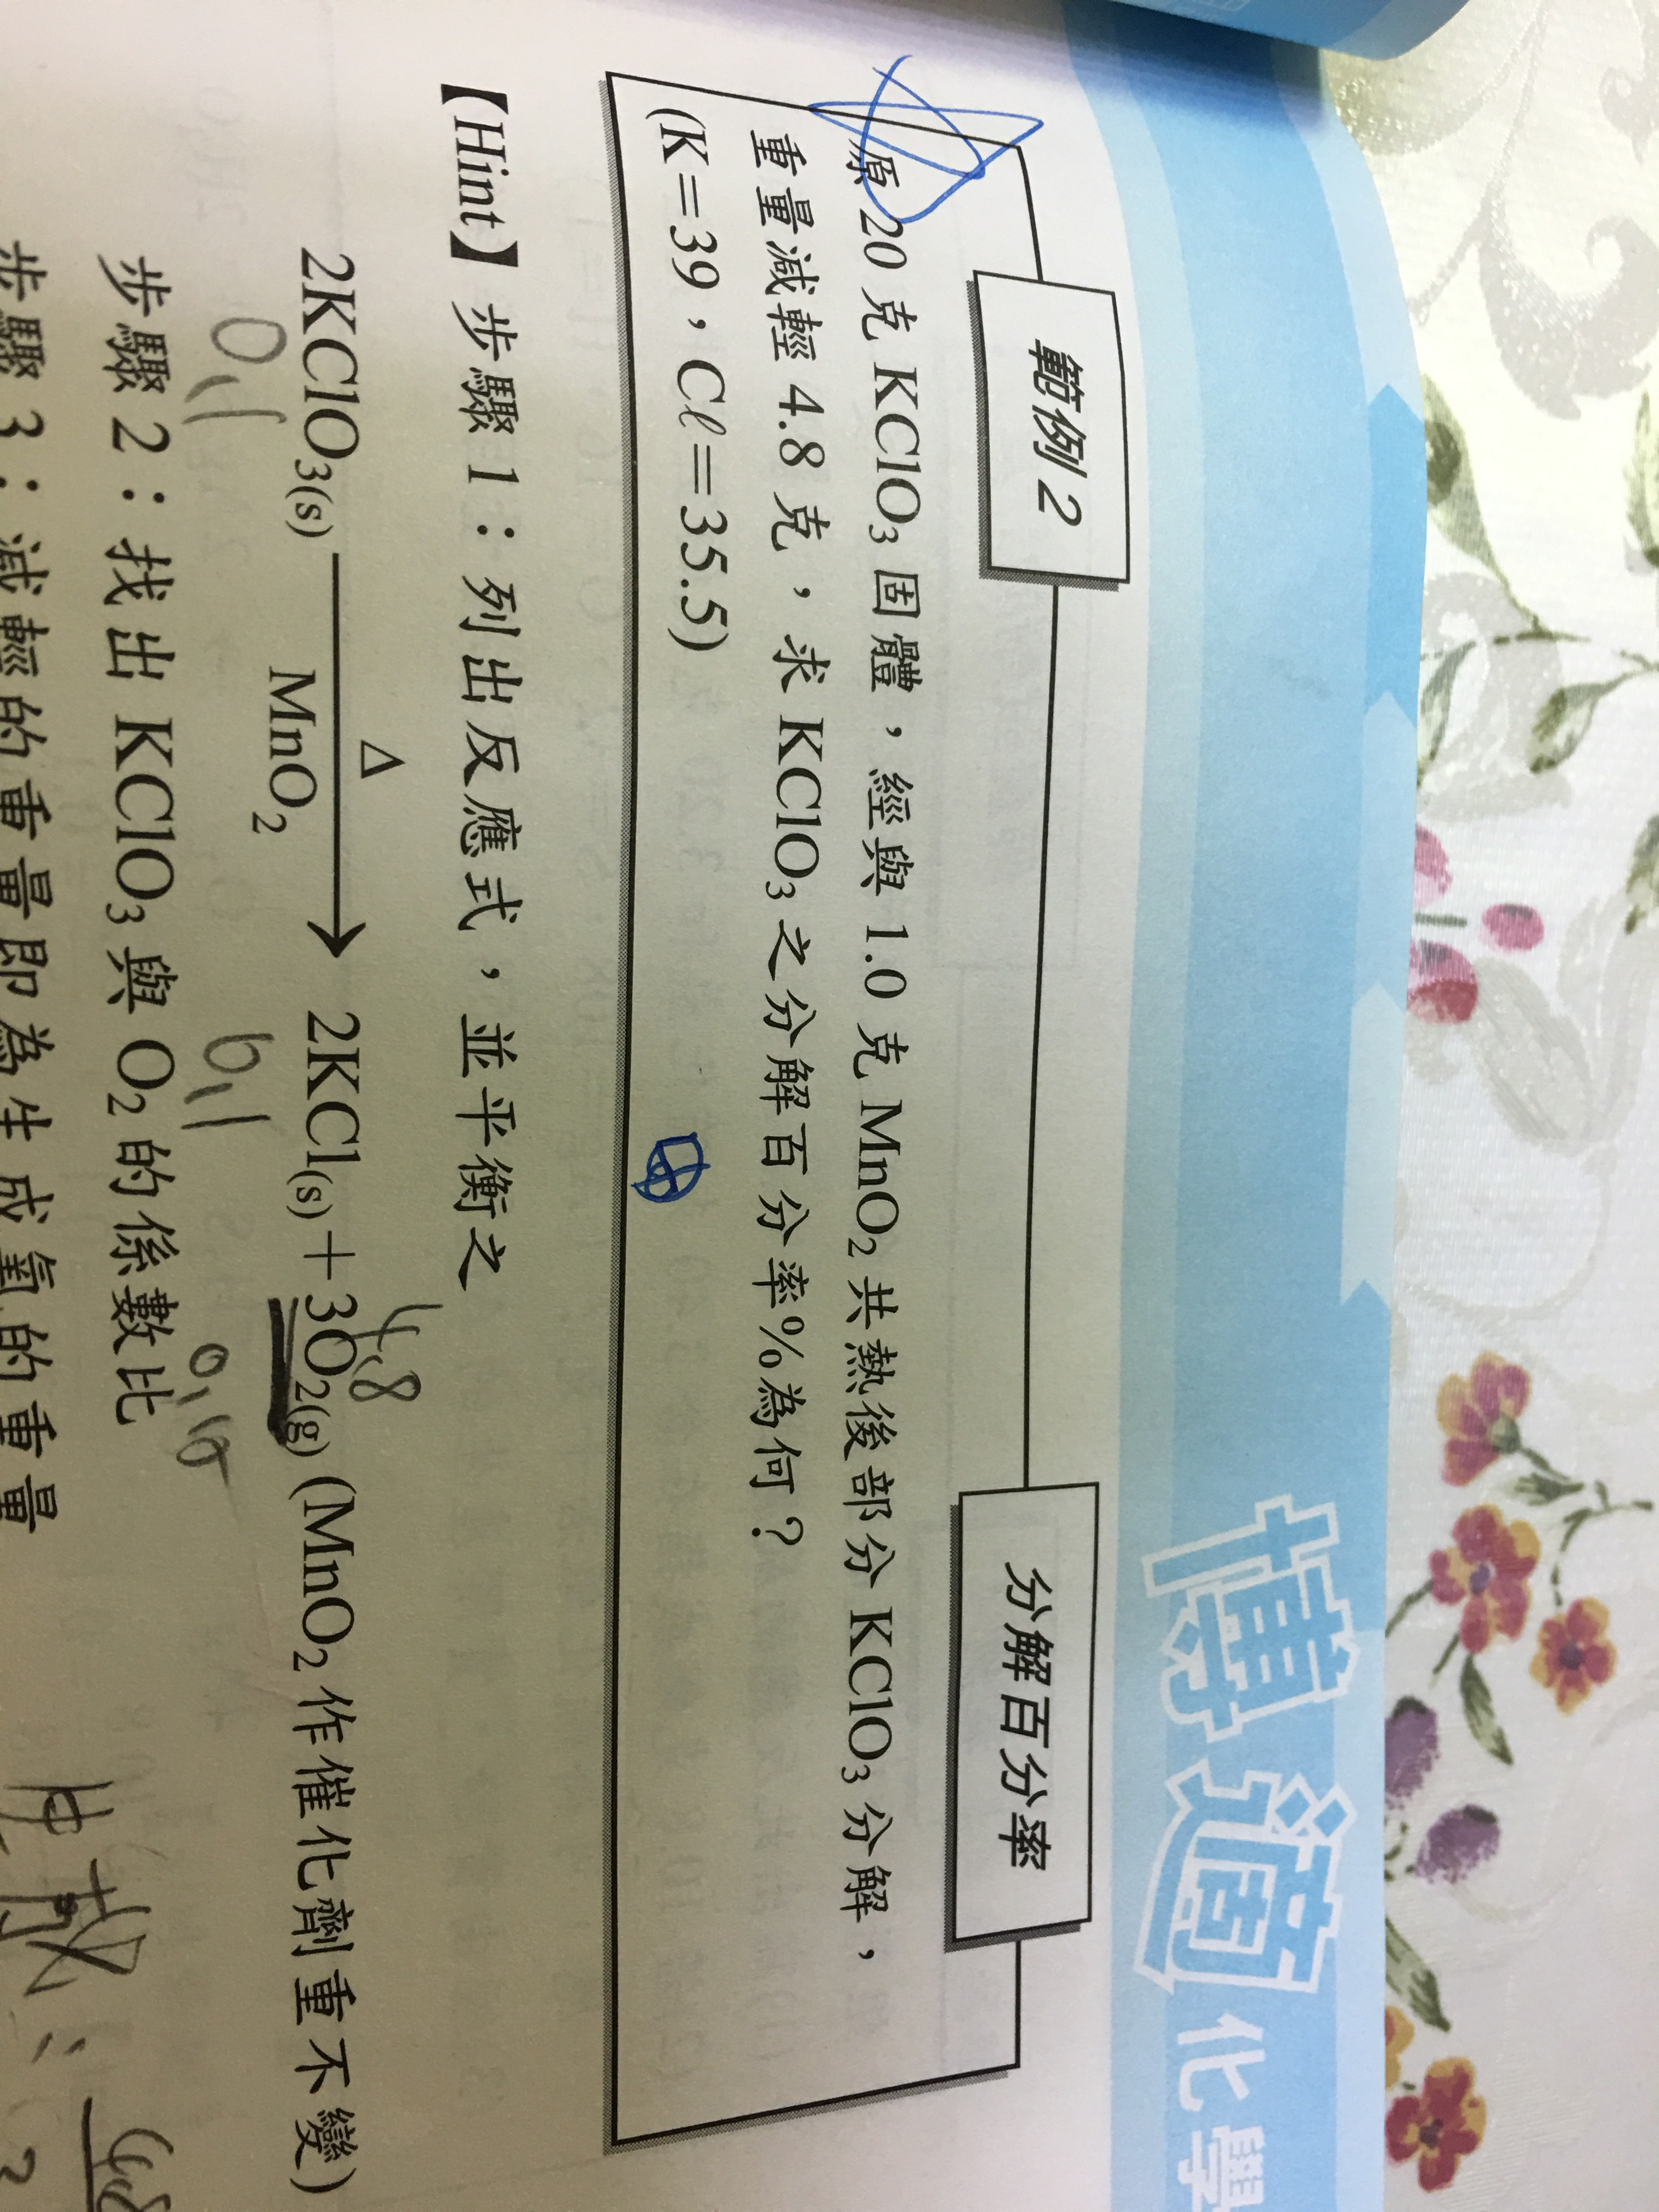 博適化學
範例 2
分解百分率
原 20 克 KClO₃ 固體，經與 1.0 克 MnO₂ 共熱後部分 KClO₃ 分解，
重量減輕 4.8 克，求 KClO₃ 之分解百分率%為何？
(K＝39，Cℓ＝35.5)
【Hint】步驟 1：列出反應式，並平衡之
4.8
Δ
2KClO₃(s) → 2KCl(s)＋3O₂(g) (MnO₂ 作催化劑重不變)
MnO₂
0.1 0.1 0.15
步驟 2：找出 KClO₃ 與 O₂ 的係數比
步驟 3：減輕的重量即為生成氧的重量